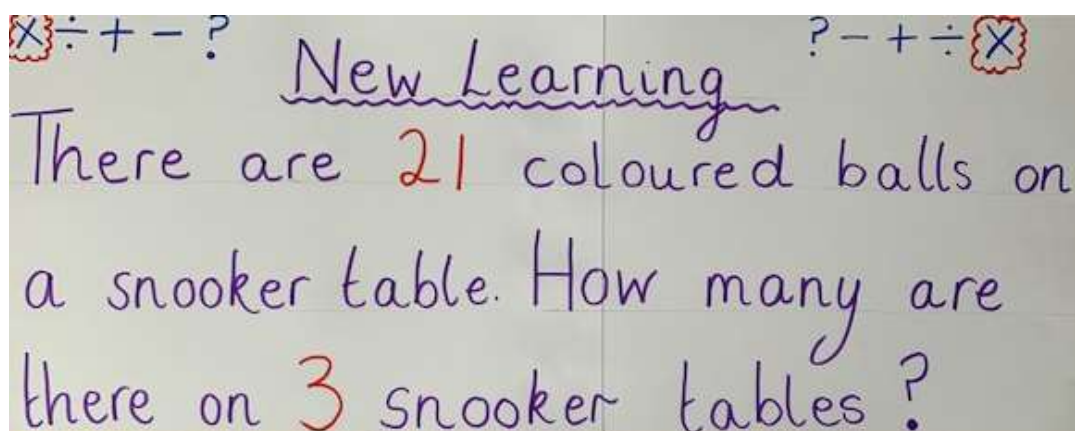 ×÷+−? ?−+÷×
New Learning
There are 21 coloured balls on
a snooker table. How many are
there on 3 snooker tables?